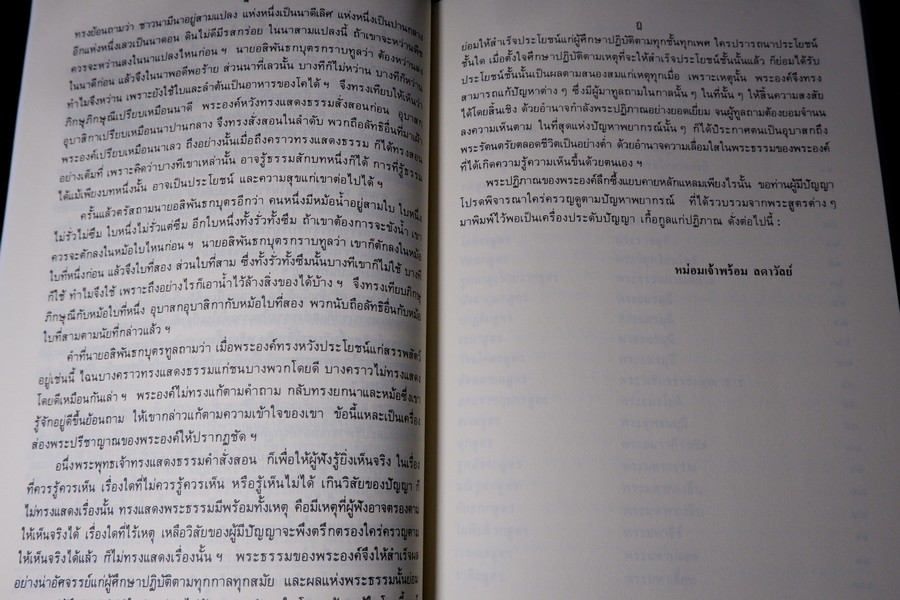 ทรงย้อนถามว่า ชาวนามีนาอยู่สามแปลง แห่งหนึ่งเป็นนาดีเลิศ แห่งหนึ่งเป็นปานกลาง
อีกแห่งหนึ่งเลวเป็นนาดอน ดินไม่ดีมีรสกร่อย ในนาสามแปลงนี้ ถ้าเขาจะหว่านพืช
ควรจะหว่านลงในนาแปลงไหนก่อน ฯ นายอสิพันธกบุตรกราบทูลว่า ต้องหว่านลง
ในนาดีก่อน แล้วจึงในนาพอดีพอร้าย ส่วนนาที่เลวนั้น บางทีก็ไม่หว่าน บางทีก็หว่าน
ทำไมจึงหว่าน เพราะยังใช้ใบและลำต้นเป็นอาหารของโคได้ ฯ จึงทรงเทียบให้เห็นว่า
ภิกษุภิกษุณีเปรียบเหมือนนาดี พระองค์หวังทรงแสดงธรรมสั่งสอนก่อน อุบาสก
อุบาสิกาเปรียบเหมือนนาปานกลาง จึงทรงสั่งสอนในลำดับ พวกถือลัทธิอื่นที่มาเฝ้า
พระองค์เปรียบเหมือนนาเลว ถึงอย่างนั้นเมื่อถึงคราวทรงแสดงธรรม ก็ได้ทรงสอน
อย่างเต็มที่ เพราะคิดว่าบางทีเขาเหล่านั้น อาจรู้ธรรมสักบทหนึ่งก็ได้ การที่รู้ธรรม
ได้แม้เพียงบทหนึ่งนั้น อาจเป็นประโยชน์ และความสุขแก่เขาต่อไปได้ ฯ
ครั้นแล้วตรัสถามนายอสิพันธกบุตรอีกว่า คนหนึ่งมีหม้อน้ำอยู่สามใบ ใบหนึ่ง
ไม่รั่วไม่ซึม ใบหนึ่งไม่รั่วแต่ซึม อีกใบหนึ่งทั้งรั่วทั้งซึม ถ้าเขาต้องการจะขังน้ำ เขา
ควรจะตักลงในหม้อใบไหนก่อน ฯ นายอสิพันธกบุตรกราบทูลว่า เขาก็ตักลงในหม้อ
ใบที่หนึ่งก่อน แล้วจึงใบที่สอง ส่วนใบที่สาม ซึ่งทั้งรั่วทั้งซึมนั้นบางทีเขาก็ไม่ใช้ บางที
ก็ใช้ ทำไมจึงใช้ เพราะถึงอย่างไรก็เอาน้ำไว้ล้างสิ่งของได้บ้าง ฯ จึงทรงเทียบภิกษุ
ภิกษุณีกับหม้อใบที่หนึ่ง อุบาสกอุบาสิกากับหม้อใบที่สอง พวกนับถือลัทธิอื่นกับหม้อ
ใบที่สามตามนัยที่กล่าวแล้ว ฯ
คำที่นายอสิพันธกบุตรทูลถามว่า เมื่อพระองค์ทรงหวังประโยชน์แก่สรรพสัตว์
อยู่เช่นนี้ ไฉนบางคราวทรงแสดงธรรมแก่ชนบางพวกโดยดี บางคราวไม่ทรงแสดง
โดยดีเหมือนกันเล่า ฯ พระองค์ไม่ทรงแก้ตามคำถาม กลับทรงยกนาและหม้อซึ่งเขา
รู้จักอยู่ดีขึ้นย้อนถาม ให้เขากล่าวแก้ตามความเข้าใจของเขา ข้อนี้แหละเป็นเครื่อง
ส่องพระปรีชาญาณของพระองค์ให้ปรากฏชัด ฯ
อนึ่งพระพุทธเจ้าทรงแสดงธรรมคำสั่งสอน ก็เพื่อให้ผู้ฟังรู้ยิ่งเห็นจริง ในเรื่อง
ที่ควรรู้ควรเห็น เรื่องใดที่ไม่ควรรู้ควรเห็น หรือรู้เห็นไม่ได้ เกินวิสัยของปัญญา ก็
ไม่ทรงแสดงเรื่องนั้น ทรงแสดงพระธรรมมีพร้อมทั้งเหตุ คือมีเหตุที่ผู้ฟังอาจตรองตาม
ให้เห็นจริงได้ เรื่องใดที่ไร้เหตุ เหลือวิสัยของผู้มีปัญญาจะพึงตรึกตรองใคร่ครวญตาม
ให้เห็นจริงได้แล้ว ก็ไม่ทรงแสดงเรื่องนั้น ฯ พระธรรมของพระองค์จึงให้สำเร็จผล
อย่างน่าอัศจรรย์แก่ผู้ศึกษาปฏิบัติตามทุกกาลทุกสมัย และผลแห่งพระธรรมนั้นย่อม
ย่อมให้สำเร็จประโยชน์แก่ผู้ศึกษาปฏิบัติตามทุกชั้นทุกเพศ ใครปรารถนาประโยชน์
ชั้นใด เมื่อตั้งใจศึกษาปฏิบัติตามเหตุที่จะให้สำเร็จประโยชน์ชั้นนั้นแล้ว ก็ย่อมได้รับ
ประโยชน์ชั้นนั้นเป็นผลตามสนองสมแก่เหตุทุกเมื่อ เพราะเหตุนั้น พระองค์จึงทรง
สามารถแก้ปัญหาต่าง ๆ ซึ่งมีผู้มาทูลถามในกาลนั้น ๆ ในที่นั้น ๆ ให้สิ้นความสงสัย
ได้โดยสิ้นเชิง ด้วยอำนาจกำลังพระปฏิภาณอย่างยอดเยี่ยม จนผู้ทูลถามต้องยอมจำนน
ลงความเห็นตาม ในที่สุดแห่งปัญหาพยากรณ์นั้น ๆ ก็ได้ประกาศตนเป็นอุบาสกถึง
พระรัตนตรัยตลอดชีวิตเป็นอย่างต่ำ ด้วยอำนาจความเลื่อมใสในพระธรรมของพระองค์
ที่ได้เกิดความรู้ความเห็นขึ้นด้วยตนเอง ฯ
พระปฏิภาณของพระองค์ลึกซึ้งแยบคายหลักแหลมเพียงไรนั้น ขอท่านผู้มีปัญญา
โปรดพิจารณาใคร่ครวญดูตามปัญหาพยากรณ์ ที่ได้รวบรวมจากพระสูตรต่าง ๆ
มาพิมพ์ไว้พอเป็นเครื่องประดับปัญญา เกื้อกูลแก่ปฏิภาณ ดั่งต่อไปนี้ :
หม่อมเจ้าพร้อม ลดาวัลย์